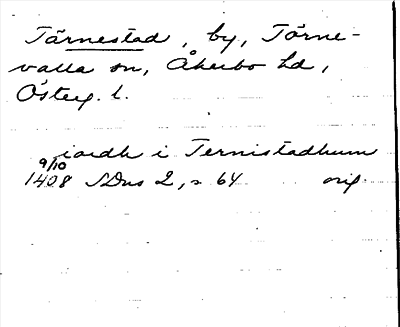 Tärnestad, by, Törne-
valla sn, Åkerbo hd,
Österg. l.
iordh i Ternistadhum
9/10
1408 SDns 2, s 64 orig.